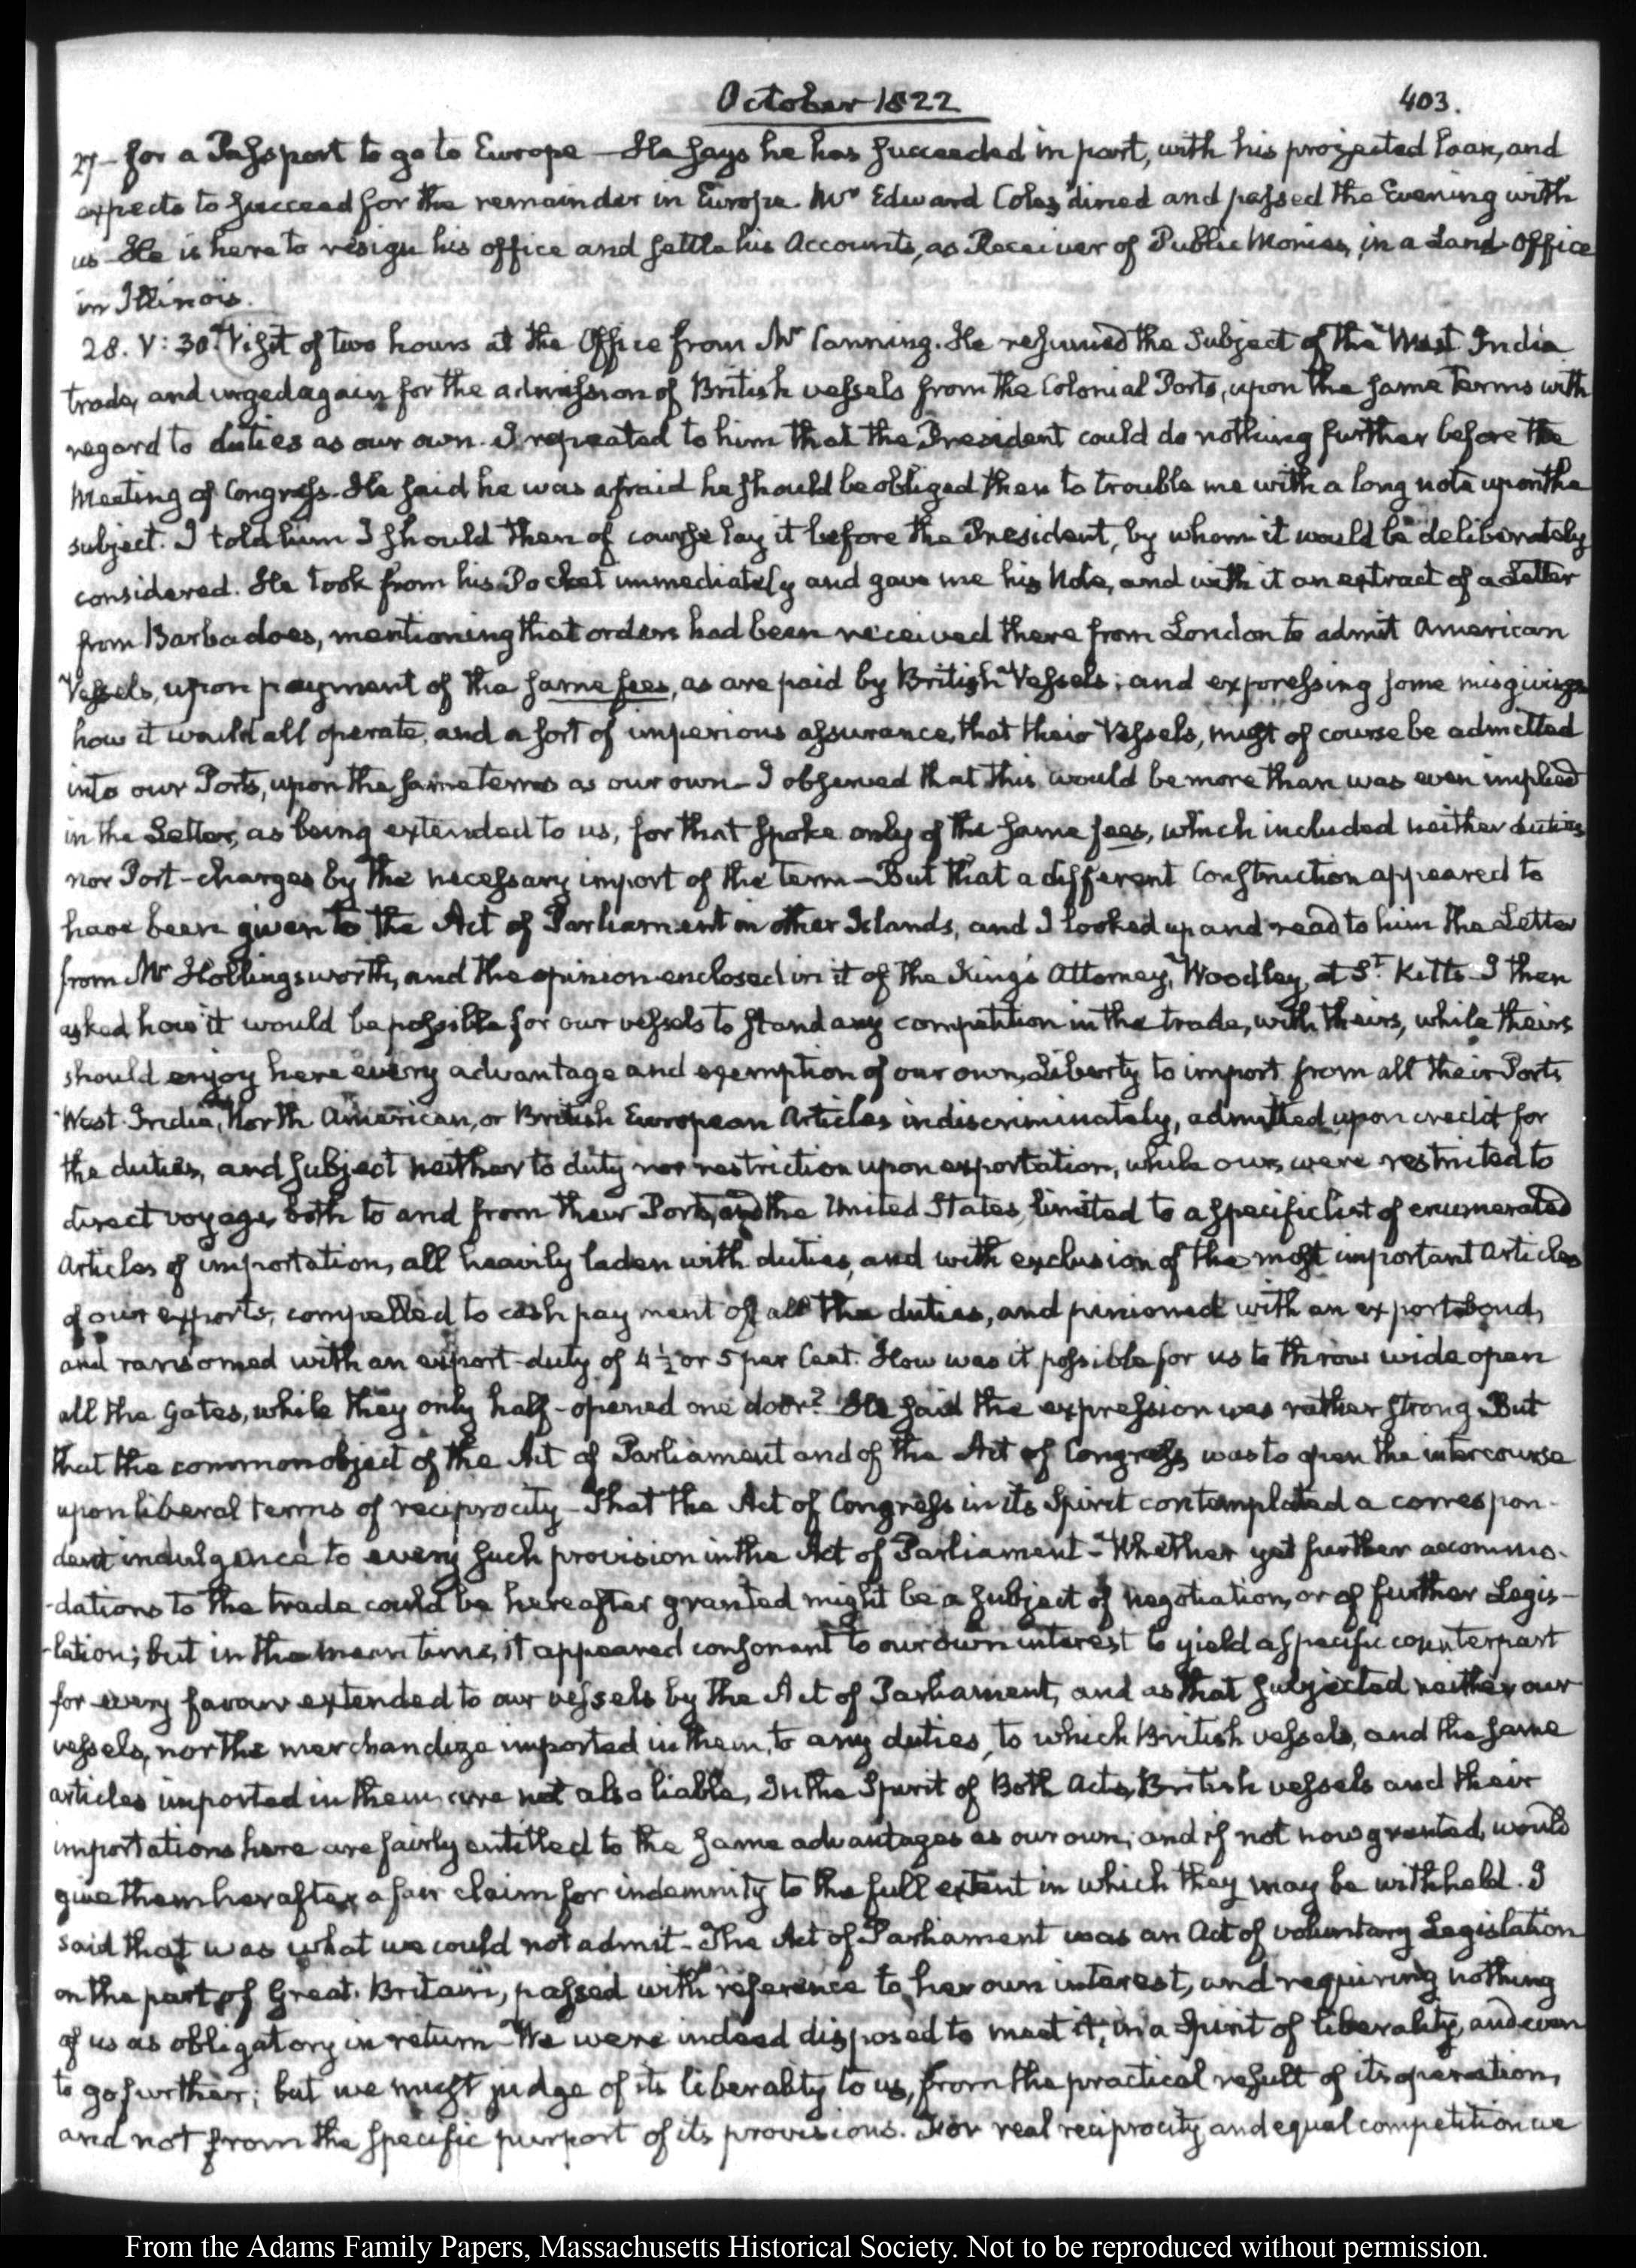 October 1822
403.
27— for a Passport to go to Europe — He says he has succeeded in part, with his projected Loan, and
expects to succeed for the remainder in Europe. Mr Edward Coles dined and passed the Evening with
us— He is here to resign his office and settle his Accounts, as Receiver of Public Monies, in a Land-Office
in Illinois.
28. V:30. Visit of two hours at the Office from Mr Canning. He resumed the Subject of the West-India
trade, and urged again for the admission of British vessels from the Colonial Ports, upon the same Terms with
regard to duties as our own. I repeated to him that the President could do nothing further before the
Meeting of Congress. He said he was afraid he should be obliged then to trouble me with a long note upon the
subject. I told him I should then of course lay it before the President, by whom it would be deliberately
considered. He took from his Pocket immediately and gave me his Note, and with it an extract of a Letter
from Barbadoes, mentioning that orders had been received there from London to admit American
Vessels, upon payment of the same fees, as are paid by British Vessels; and expressing some misgivings
how it would all operate, and a sort of imperious assurance, that their Vessels, must of course be admitted
into our Ports, upon the same terms as our own— I observed that this would be more than was even implied
in the Letter, as being extended to us, for that spoke only of the same fees, which included neither duties
nor Port-charges by the necessary import of the term— But that a different Construction appeared to
have been given to the Act of Parliament in other Islands, and I looked up and read to him the Letter
from Mr Hollingsworth, and the opinion enclosed in it of the King's Attorney, Woodley, at St. Kitts— I then
asked how it would be possible for our vessels to stand any competition in the trade, with theirs, while theirs
should enjoy here every advantage and exemption of our own, Liberty to import from all their Ports
West-India, North American, or British European Articles indiscriminately, admitted upon credit for
the duties, and subject neither to duty nor restriction upon exportation, while ours were restricted to
direct voyages both to and from their Ports, and the United States, limited to a specific list of enumerated
Articles of importation, all heavily laden with duties, and with exclusion of the most important Articles
of our exports, compelled to cash payment of all the duties, and pinioned with an export-bond,
and ransomed with an export-duty of 4½ or 5 per Cent. How was it possible for us to throw wide open
all the Gates, while they only half-opened one door? He said the expression was rather strong. But
that the common object of the Act of Parliament and of the Act of Congress was to open the intercourse
upon liberal terms of reciprocity— That the Act of Congress in its Spirit contemplated a correspon-
dent indulgence to every such provision in the Act of Parliament— Whether yet further accommo-
-dations to the trade could be hereafter granted might be a subject of negotiation, or of further Legis-
-lation; but in the mean time, it appeared consonant to our own interest to yield a specific counterpart
for every favour extended to our vessels by the Act of Parliament, and as that subjected neither our
vessels, nor the merchandize imported in them, to any duties, to which British vessels, and the same
articles imported in them, are not also liable, In the Spirit of Both Acts, British vessels and their
importations here are fairly entitled to the same advantages as our own; and if not now granted, would
give them hereafter a fair claim for indemnity to the full extent in which they may be withheld. I
said that was what we could not admit— The Act of Parliament was an Act of voluntary Legislation
on the part of Great-Britain, passed with reference to her own interest, and requiring nothing
of us as obligatory in return— We were indeed disposed to meet it, in a Spirit of liberality, and even
to go further; but we must judge of its liberality to us, from the practical result of its operation,
and not from the specific purport of its provisions. For real reciprocity and equal competition we
From the Adams Family Papers, Massachusetts Historical Society. Not to be reproduced without permission.